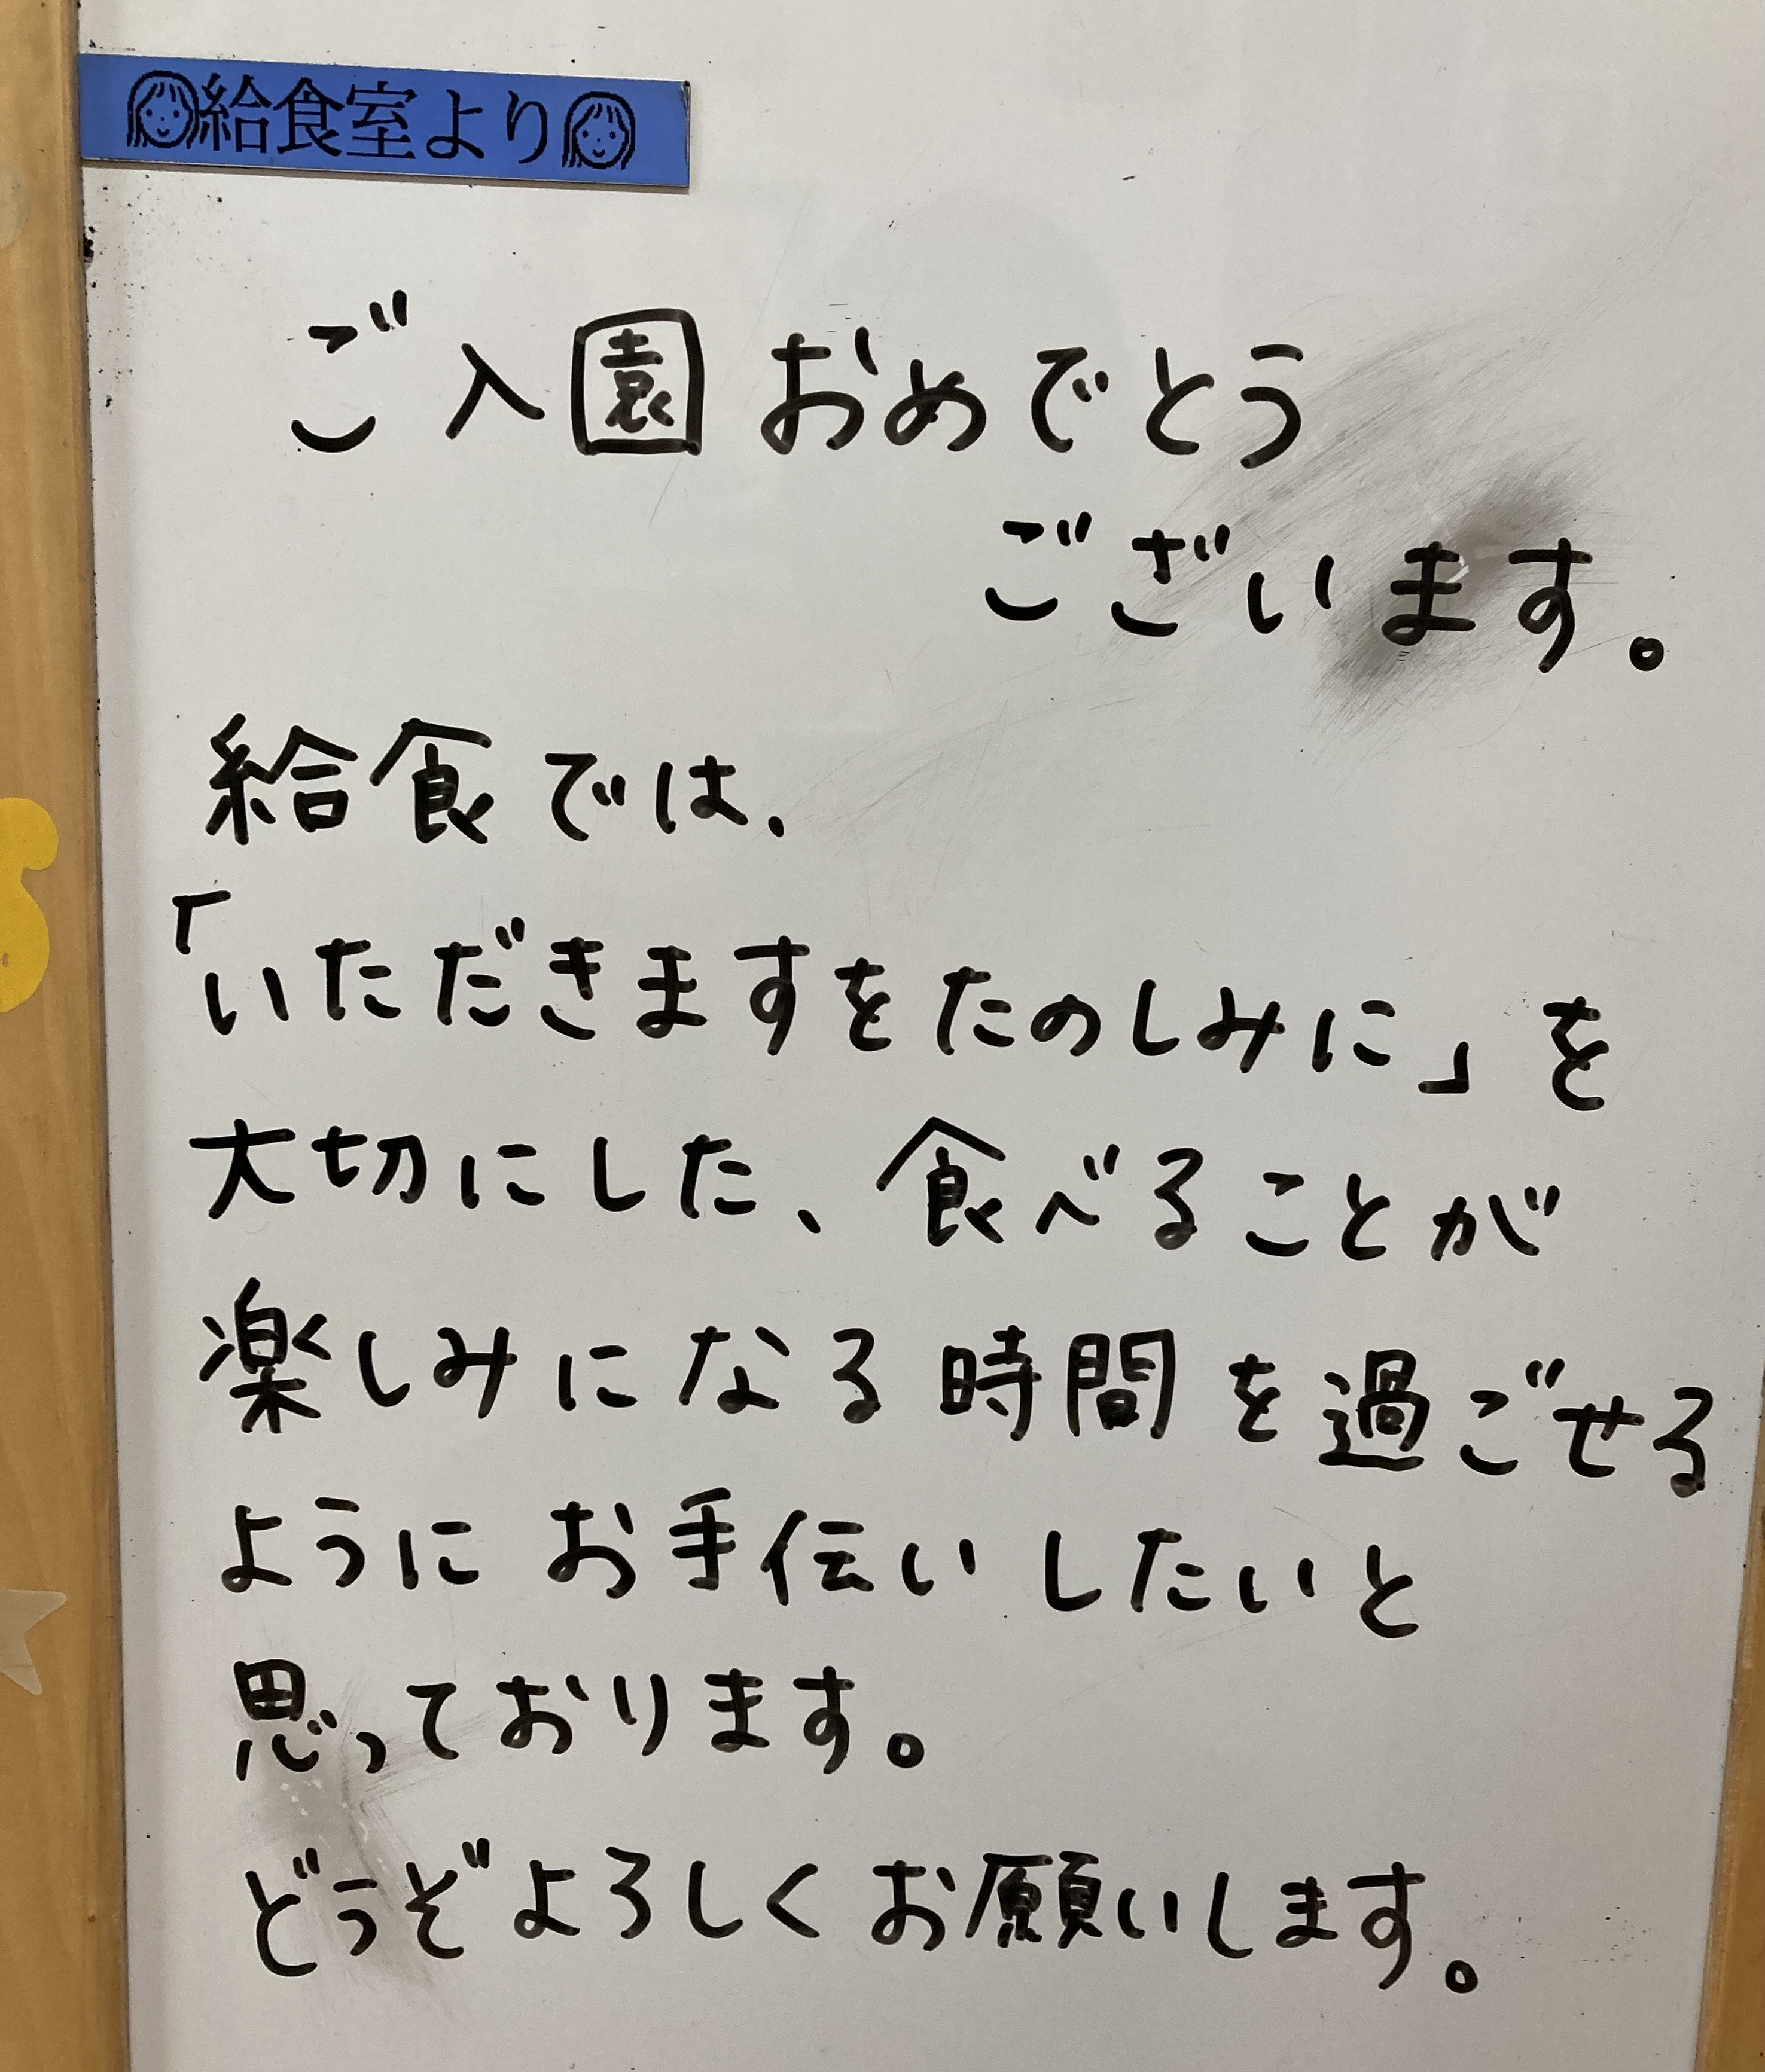 給食室より
ご入園おめでとう
ございます。
給食では、
「いただきますをたのしみに」を
大切にした、食べることが
楽しみになる時間を過ごせる
ようにお手伝いしたいと
思っております。
どうぞよろしくお願いします。